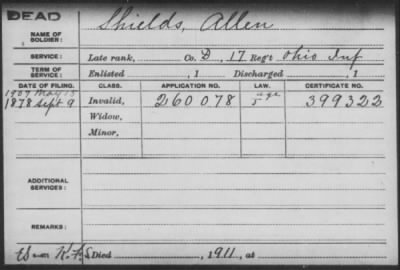 DEAD
Shields, Allen
NAME OF SOLDIER:
SERVICE: Late rank, Co. D, 17 Reg't Ohio Inf
TERM OF SERVICE: Enlisted , 1 Discharged , 1
DATE OF FILING. CLASS. APPLICATION NO. LAW. CERTIFICATE NO.
1907 May 15 age
1878 Sept 9 Invalid, 260078 5 399322
Widow,
Minor,
ADDITIONAL SERVICES:
REMARKS:
Died , 1911, at